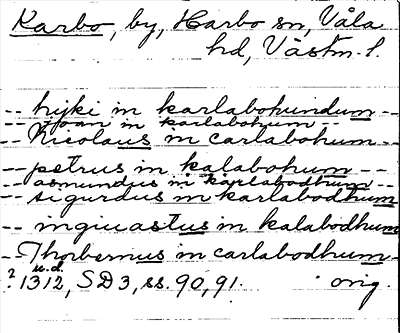 Karbo, by, Harbo sn, Våla
hd, Västm. l.
-- hyki in karlabohundum --
-- joan in karlabohum --
-- Nicolaus in carlabohum --
-- petrus in kalabohum --
-- asmundus in karlabodhum --
-- sigurdus in karlabodhum
-- ingiuastus in kalabodhum
-- Thorbernus in carlabodhum --
u.d.
? 1312, SD 3, ss. 90, 91. orig.